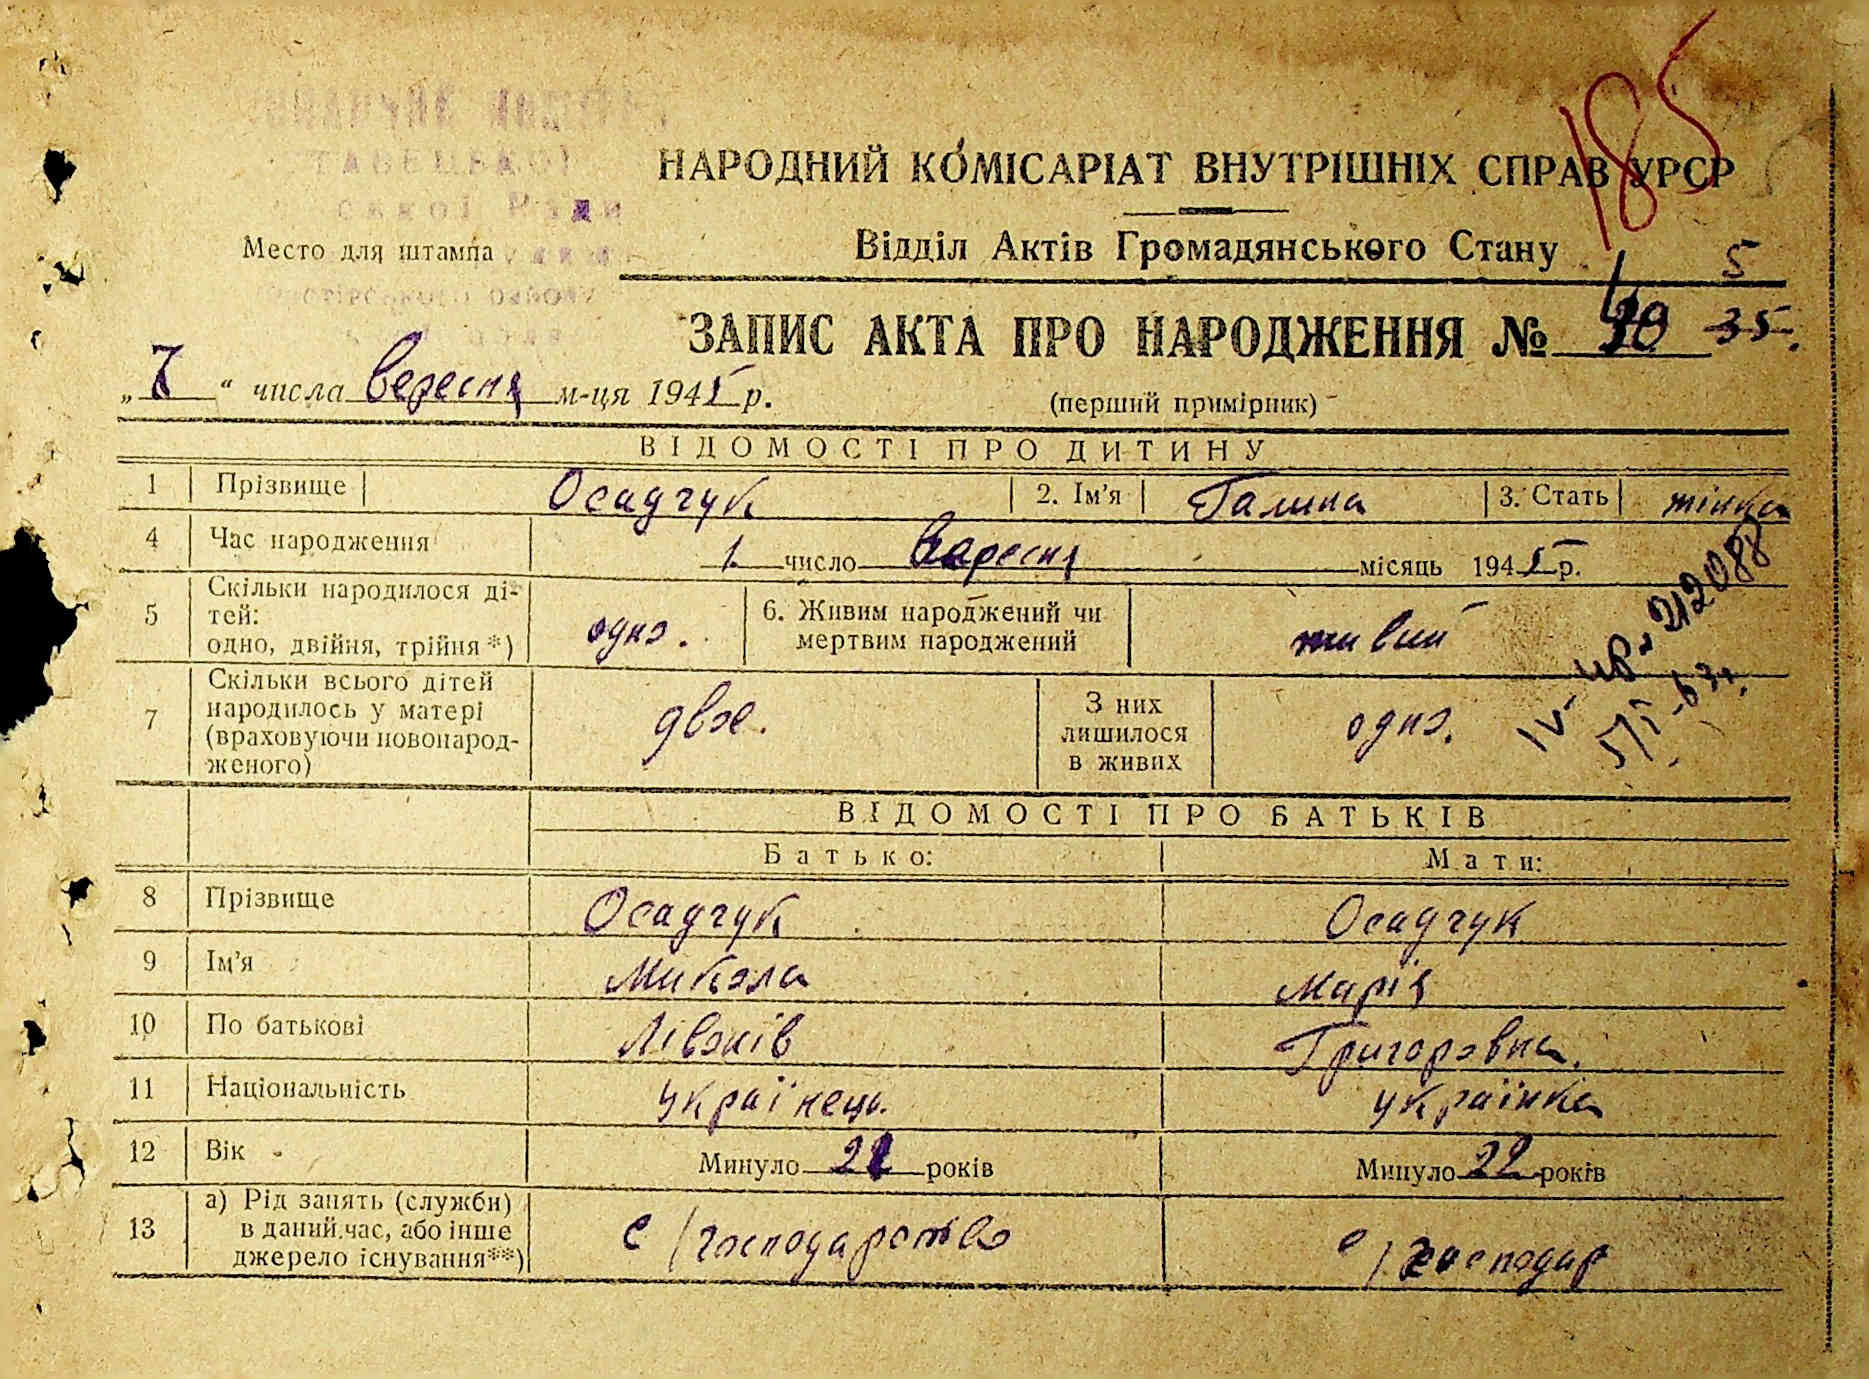 185
НАРОДНИЙ КОМІСАРІАТ ВНУТРІШНІХ СПРАВ УРСР
Место для штампа
Відділ Актів Громадянського Стану
5
ЗАПИС АКТА ПРО НАРОДЖЕННЯ № 35
„ “ числа вересня м-ця 1945 р.
(перший примірник)
ВІДОМОСТІ ПРО ДИТИНУ
1 Прізвище Осадчук 2. Ім'я Галина 3. Стать жінка
4 Час народження 1. число вересня місяць 1945 р.
5 Скільки народилося ді-
тей:
одно, двійня, трійня*) одно. 6. Живим народжений чи
мертвим народжений живий
7 Скільки всього дітей
народилось у матері
(враховуючи новонарод-
женого) двоє. З них
лишилося
в живих одно.
212088
ВІДОМОСТІ ПРО БАТЬКІВ
Батько: Мати:
8 Прізвище Осадчук Осадчук
9 Ім'я Микола Марія
10 По батькові Лівонів Григоровна.
11 Національність українець. українка
12 Вік Минуло років Минуло 22 років
13 а) Рід занять (служби)
в даний час, або інше
джерело існування**) с/господарство с/господар